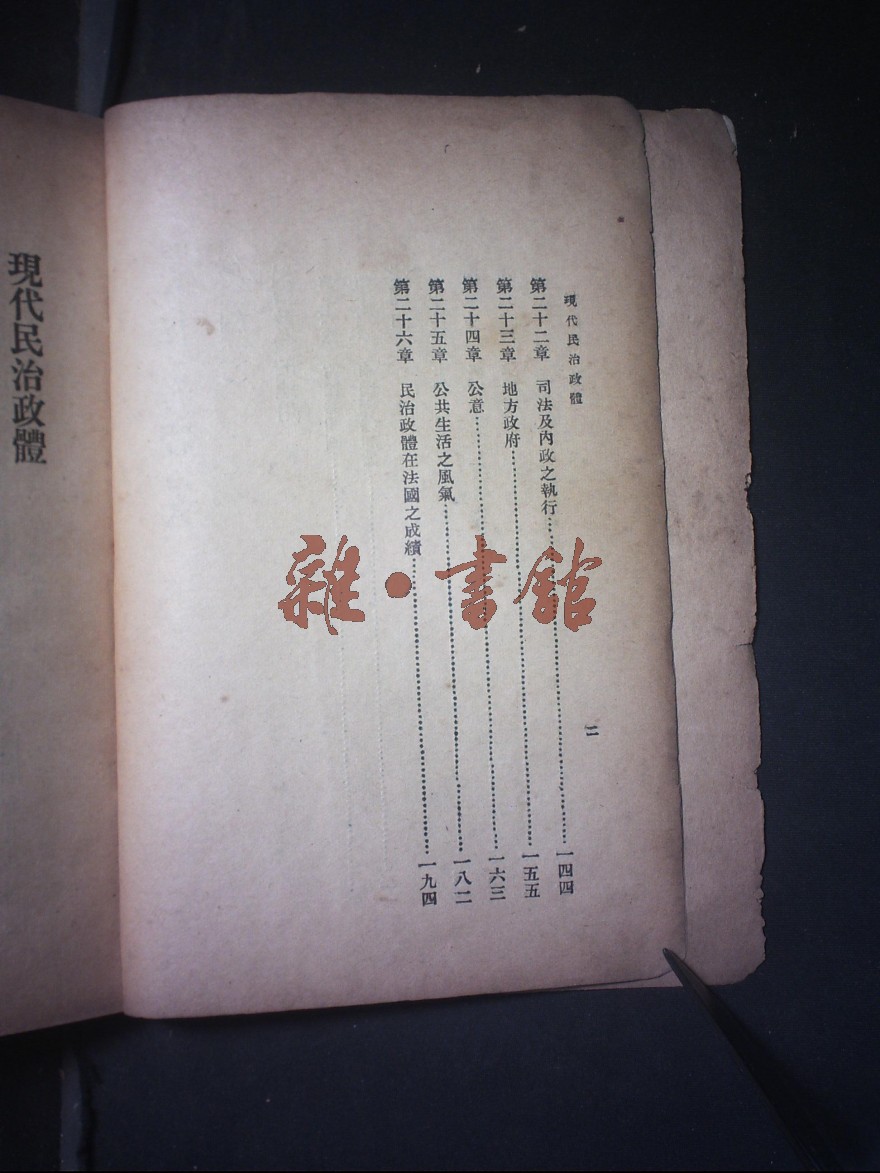 現代民治政體
二
第二十二章 司法及內政之執行…………一四四
第二十三章 地方政府…………一五五
第二十四章 公意…………一六三
第二十五章 公共生活之風氣…………一八二
第二十六章 民治政體在法國之成績…………一九四
現代民治政體
雜·書館